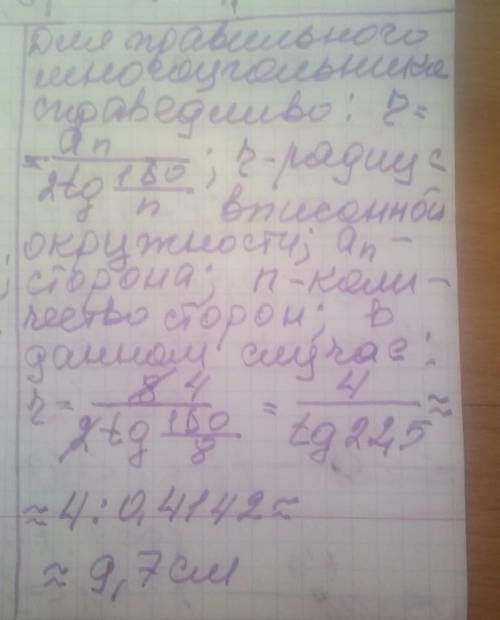 Для правильного
многоугольника
справедливо: r=
= aₙ / 2tg 180/n ; r-радиус
вписанной
окружности; aₙ -
сторона; n-коли-
чество сторон; в
данном случае:
r = 8 4 / 2tg 180/8 = 4 / tg 22,5 ≈
≈ 4 : 0,4142 ≈
≈ 9,7 см